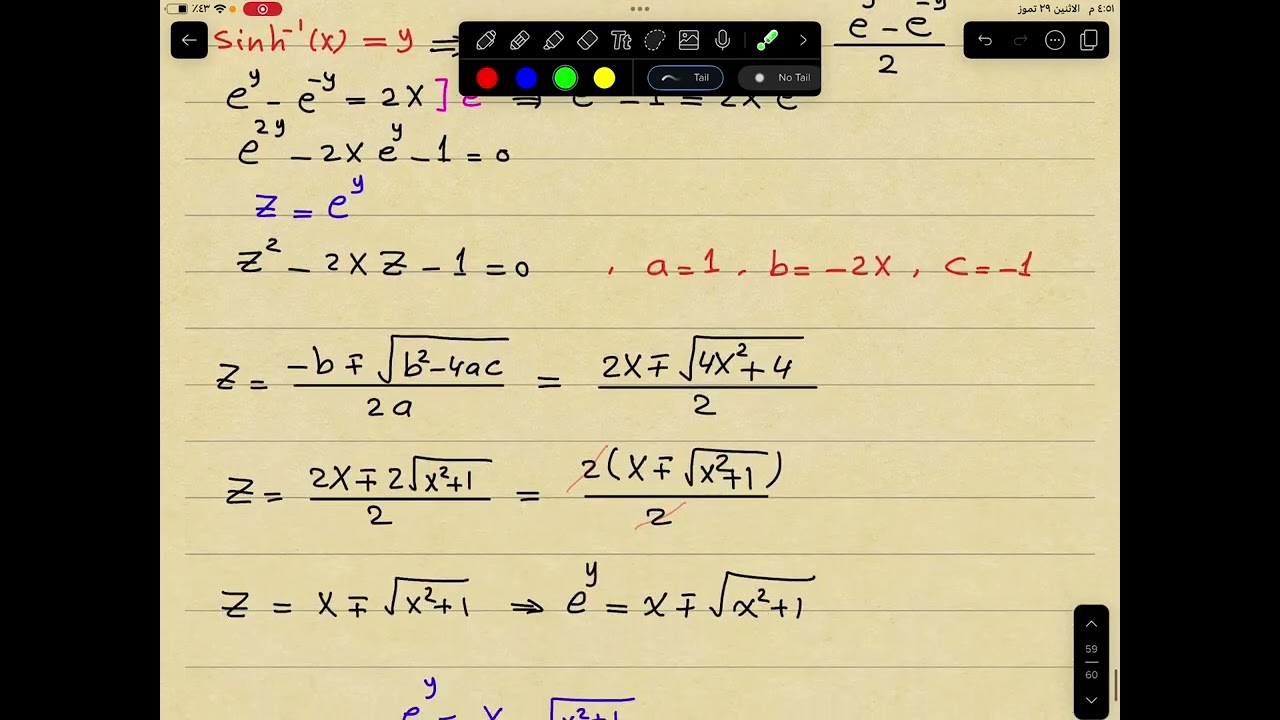 ٤:٥١ م الاثنين ٢٩ تموز
٪٤٣
sinh⁻¹(x) = y ⇒
e^y - e^-y
2
Tt
Tail
No Tail
e^y - e^-y = 2x ] e ⇒ e - 1 = 2x e
e^2y - 2x e^y - 1 = 0
z = e^y
z² - 2x z - 1 = 0 , a = 1 , b = -2x , c = -1
z = (-b ∓ √(b²-4ac)) / 2a = (2x ∓ √(4x²+4)) / 2
z = (2x ∓ 2√(x²+1)) / 2 = 2(x ∓ √(x²+1)) / 2
z = x ∓ √(x²+1) ⇒ e^y = x ∓ √(x²+1)
59
60
e^y = x - √(x²+1)